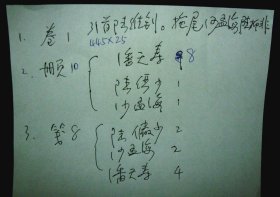 1. 卷 1 引首陆维钊。拖尾沙孟海陆抑非
445×25
2. 册页10 潘天寿 8
陆俨少 1
沙孟海 1
3. 第 8 陆俨少 2
沙孟海 2
潘天寿 4